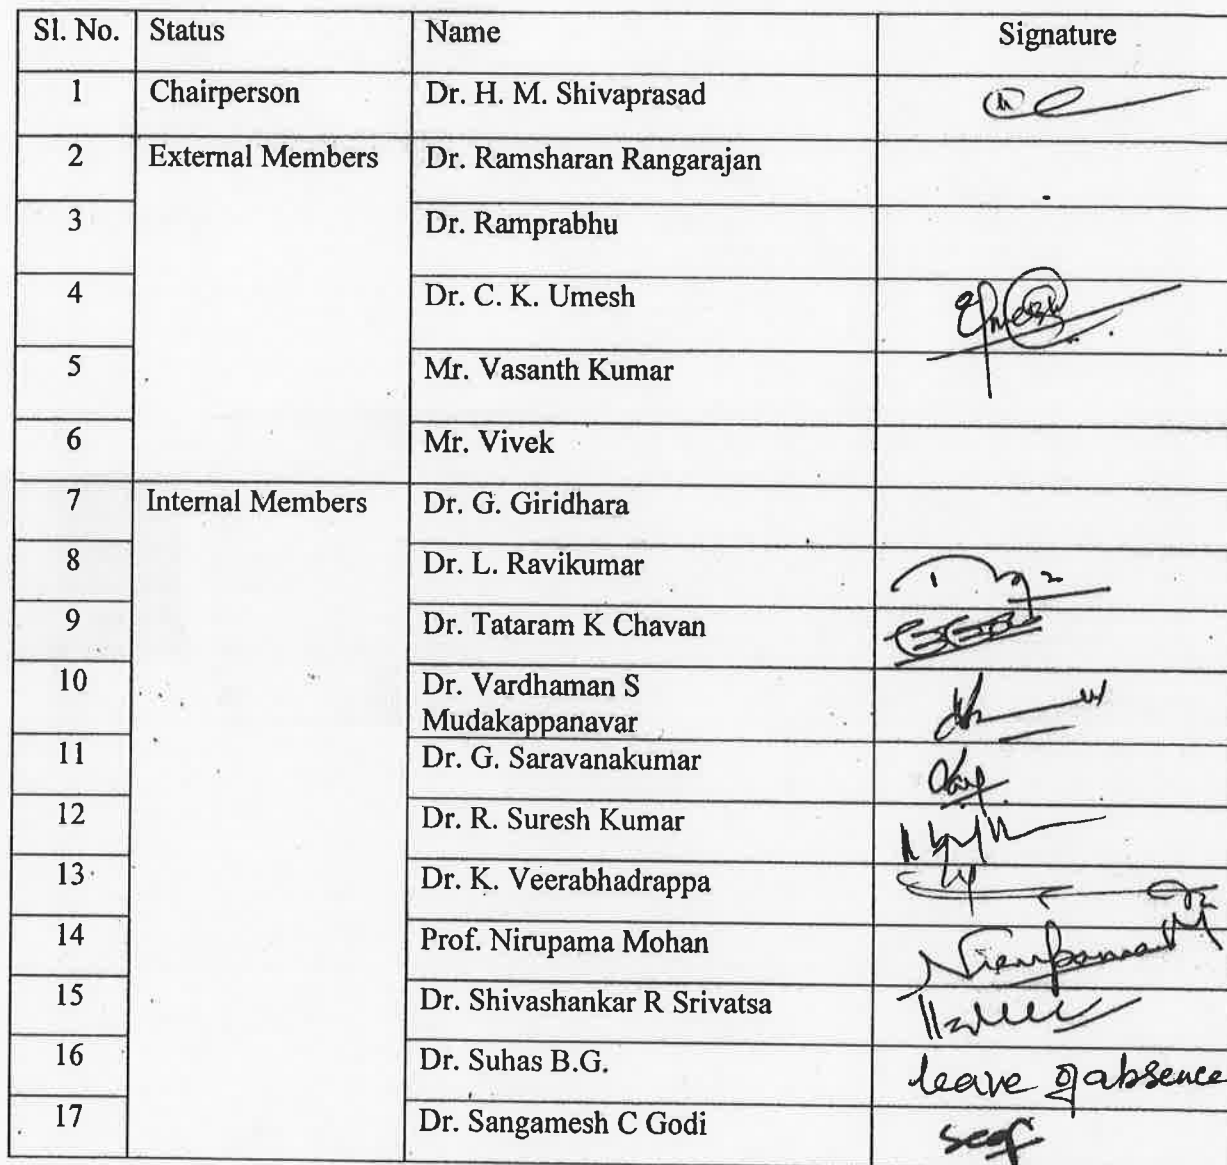 Sl. No. Status Name Signature
1 Chairperson Dr. H. M. Shivaprasad
2 External Members Dr. Ramsharan Rangarajan
3 Dr. Ramprabhu
4 Dr. C. K. Umesh
5 Mr. Vasanth Kumar
6 Mr. Vivek
7 Internal Members Dr. G. Giridhara
8 Dr. L. Ravikumar
9 Dr. Tataram K Chavan
10 Dr. Vardhaman S
Mudakappanavar
11 Dr. G. Saravanakumar
12 Dr. R. Suresh Kumar
13 Dr. K. Veerabhadrappa
14 Prof. Nirupama Mohan
15 Dr. Shivashankar R Srivatsa
16 Dr. Suhas B.G. leave of absence
17 Dr. Sangamesh C Godi